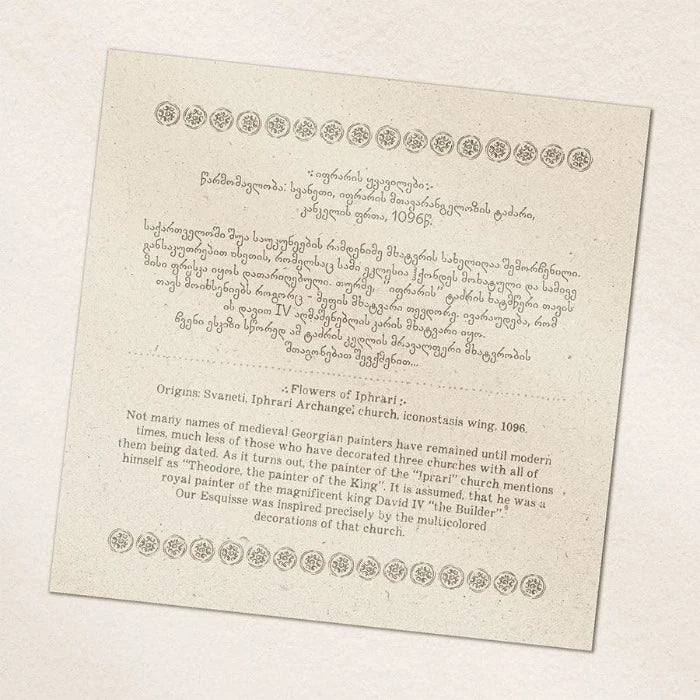 ·:იფრარის ყვავილები:·
წარმომავლობა: სვანეთი, იფრარის მთავარანგელოზის ტაძარი,
კანკელის ფრთა, 1096წ.
საქართველოში შუა საუკუნეების რამდენიმე მხატვრის სახელიღაა შემორჩენილი.
განსაკუთრებით ისეთის, რომელსაც სამი ეკლესია ჰქონდეს მოხატული და სამივე
მისი ფრესკა იყოს დათარიღებული. თურმე, "იფრარის" ტაძრის ხატმწერი თავის
თავს მოიხსენიებს როგორც - მეფის მხატვარი თევდორე. ივარაუდება, რომ
ის დავით IV აღმაშენებლის კარის მხატვარი იყო.
ჩვენი ესკიზი სწორედ ამ ტაძრის კედლის მრავალფერი მხატვრობის
შთაგონებით შევქმენით...
.:.Flowers of Iphrari:.
Origins: Svaneti, Iphrari Archangel church, iconostasis wing, 1096.
Not many names of medieval Georgian painters have remained until modern
times, much less of those who have decorated three churches with all of
them being dated. As it turns out, the painter of the "Iprari" church mentions
himself as "Theodore, the painter of the King". It is assumed, that he was a
royal painter of the magnificent king David IV "the Builder".
Our Esquisse was inspired precisely by the multicolored
decorations of that church.